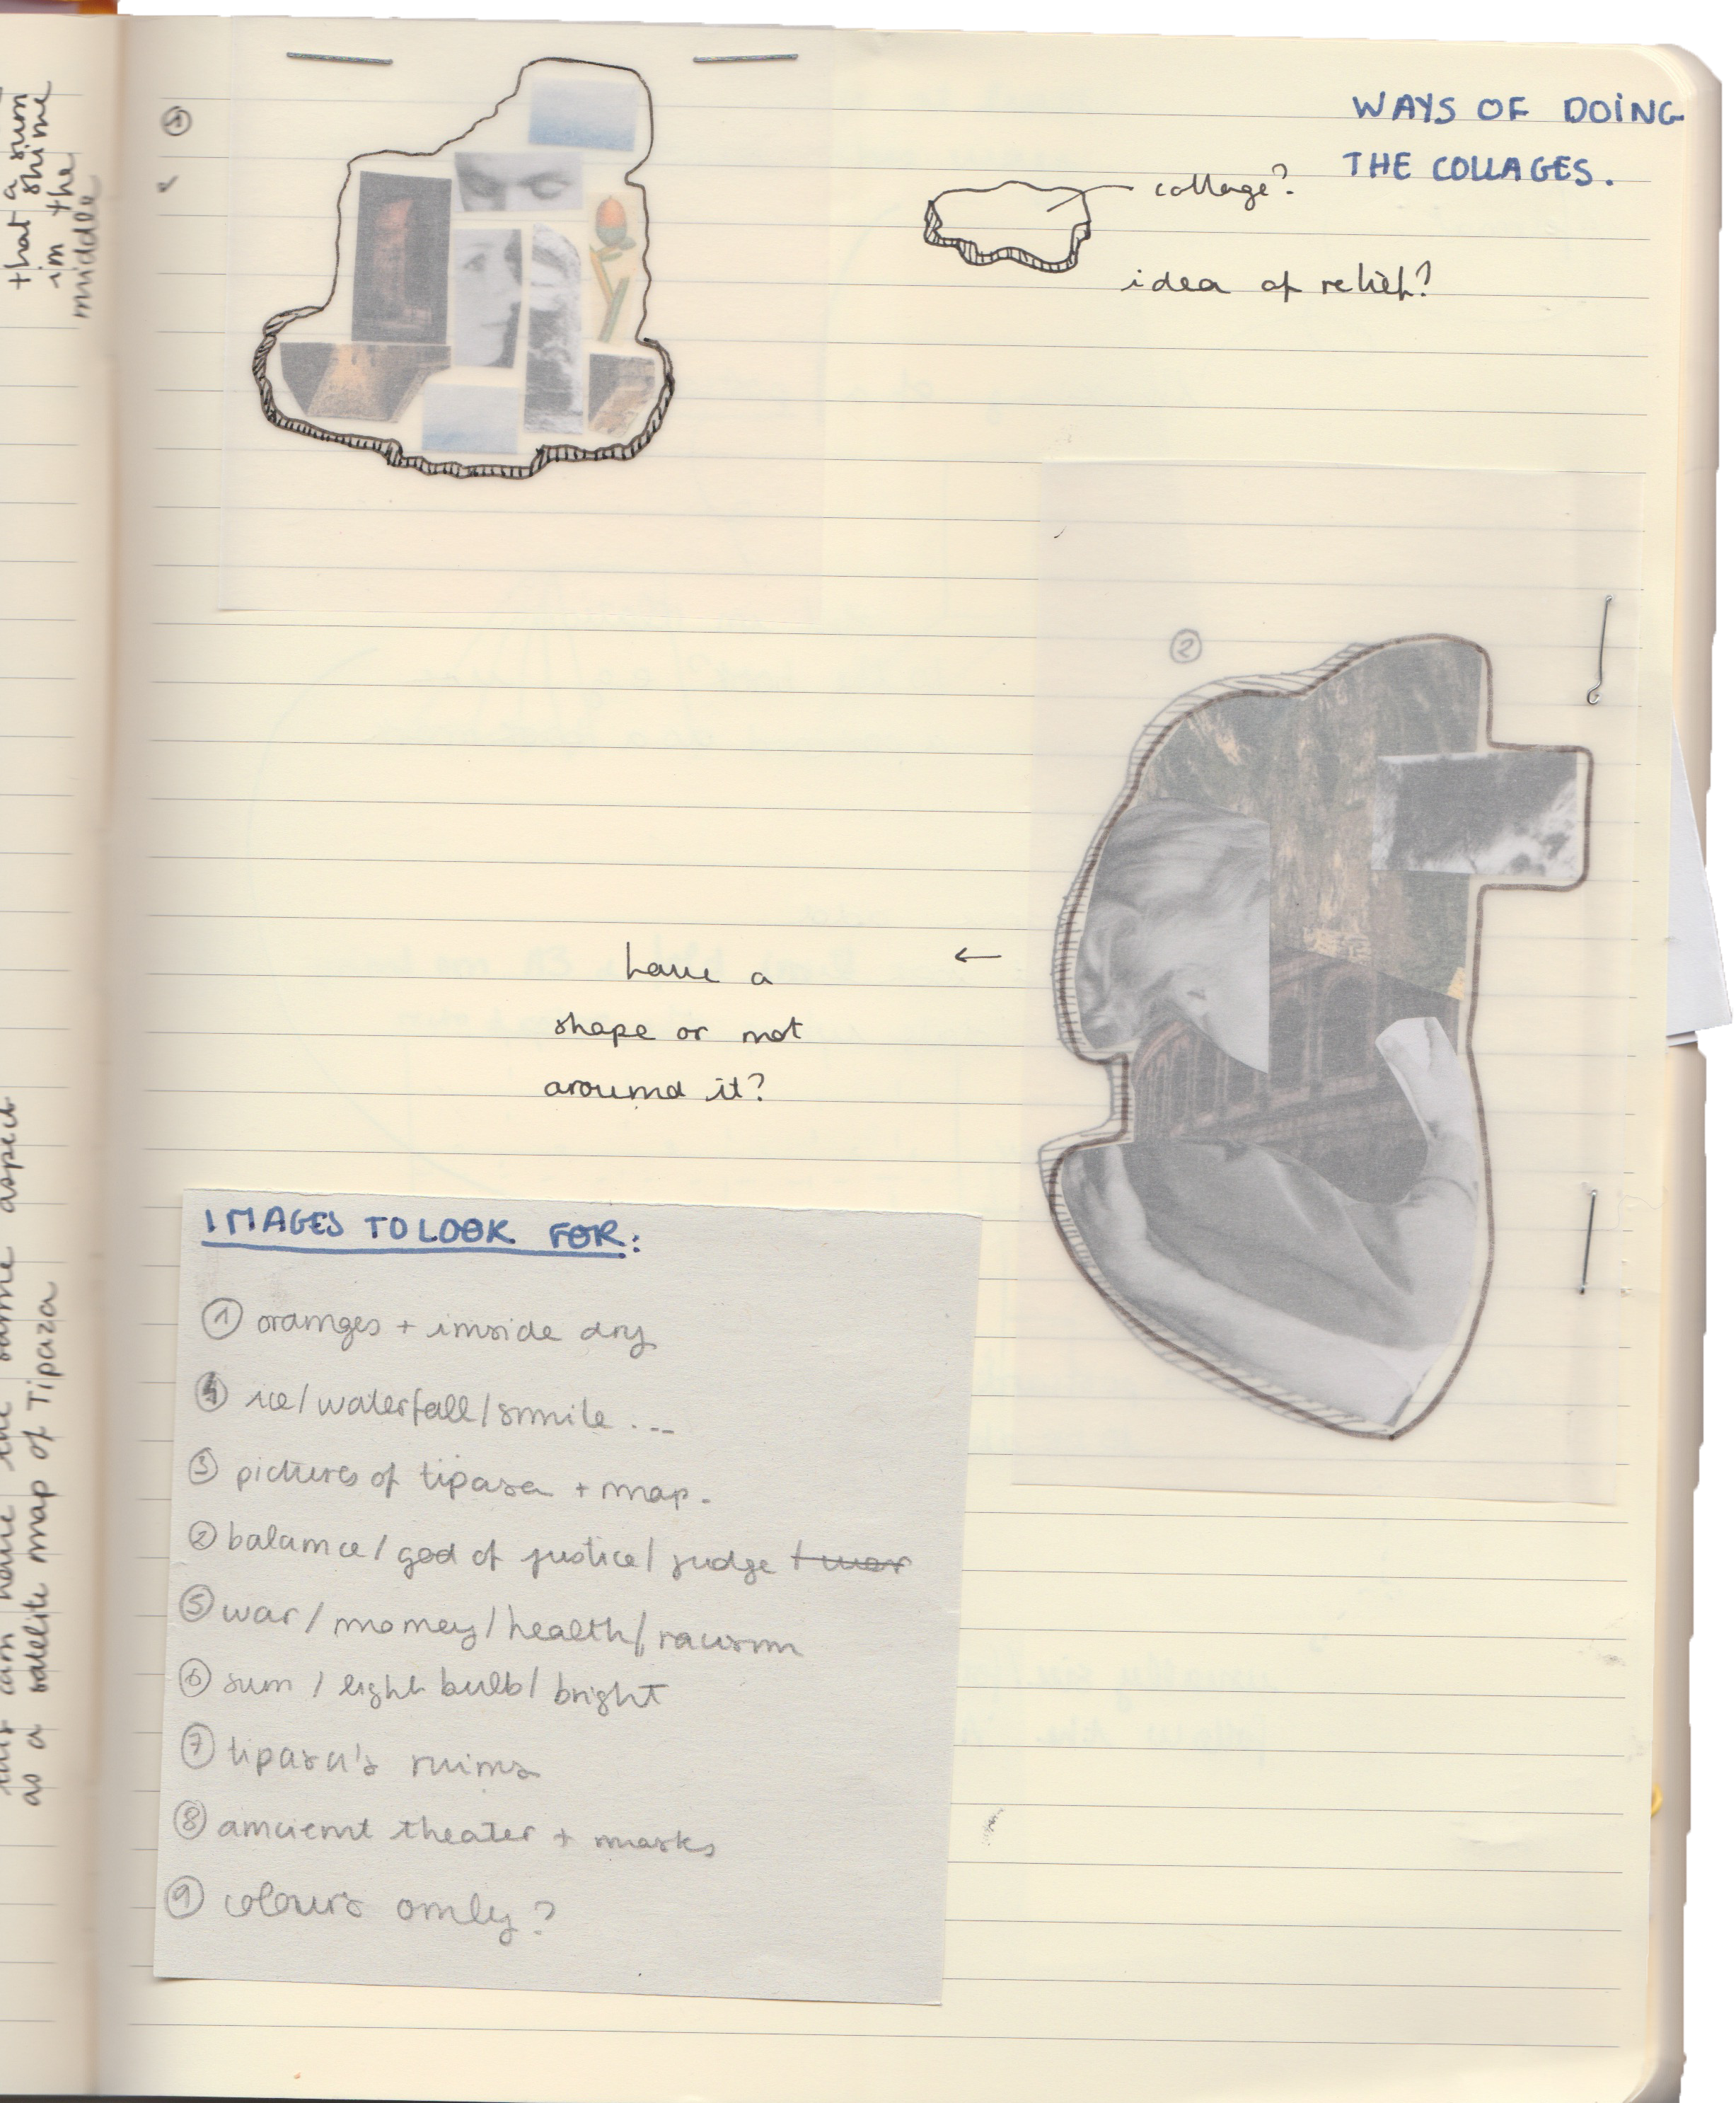 that a sun
shine
in the
middle
same aspect
as a satelite map of Tipaza
WAYS OF DOING
THE COLLAGES.
collage?
idea of relief?
②
have a
shape or not
around it?
←
IMAGES TO LOOK FOR:
① oranges + inside dry
④ ice/waterfall/smile ...
③ pictures of tipasa + map.
② balance/god of justice/judge + war
⑤ war/money/health/racism
⑥ sun/light bulb/bright
⑦ tipasa's ruins
⑧ ancient theater + masks
⑨ colours only?